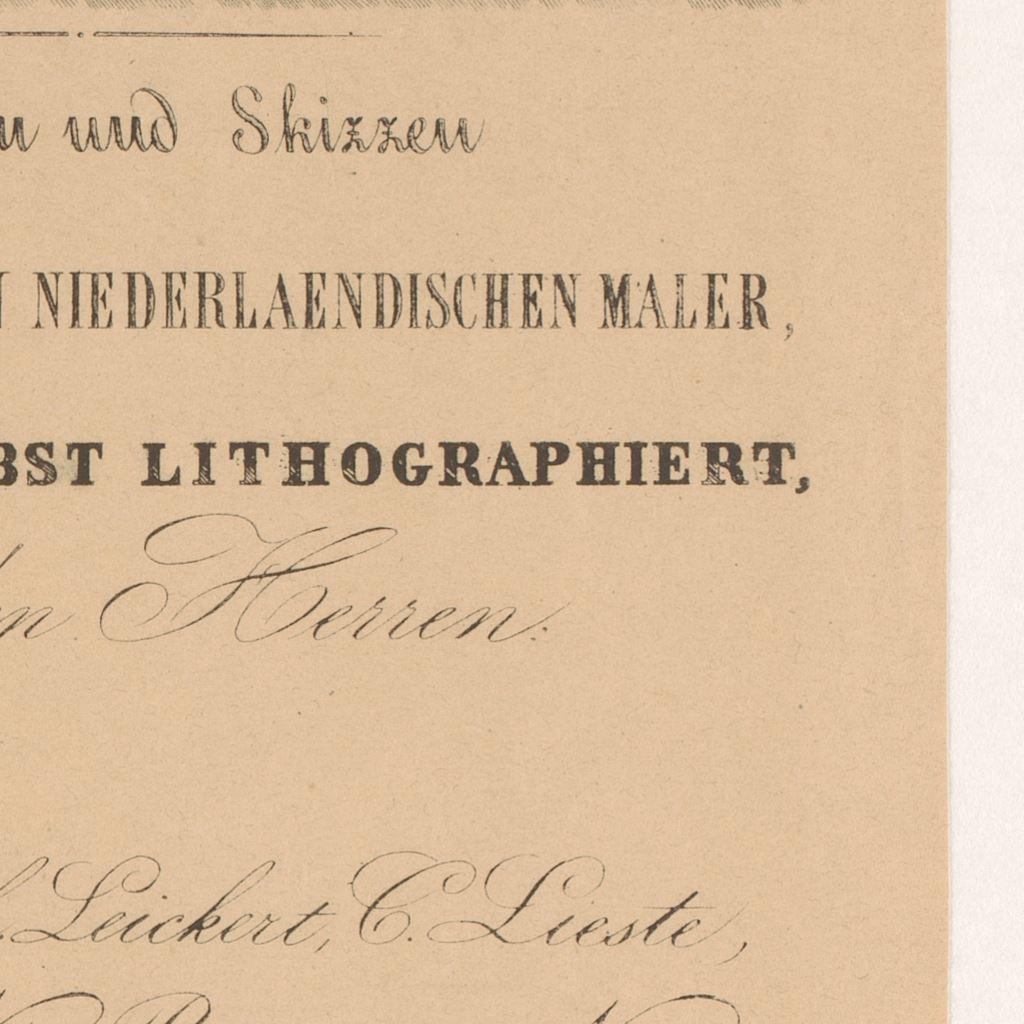 und Skizzen
NIEDERLAENDISCHEN MALER,
BST LITHOGRAPHIERT,
Herren:
Leickert, C. Lieste,